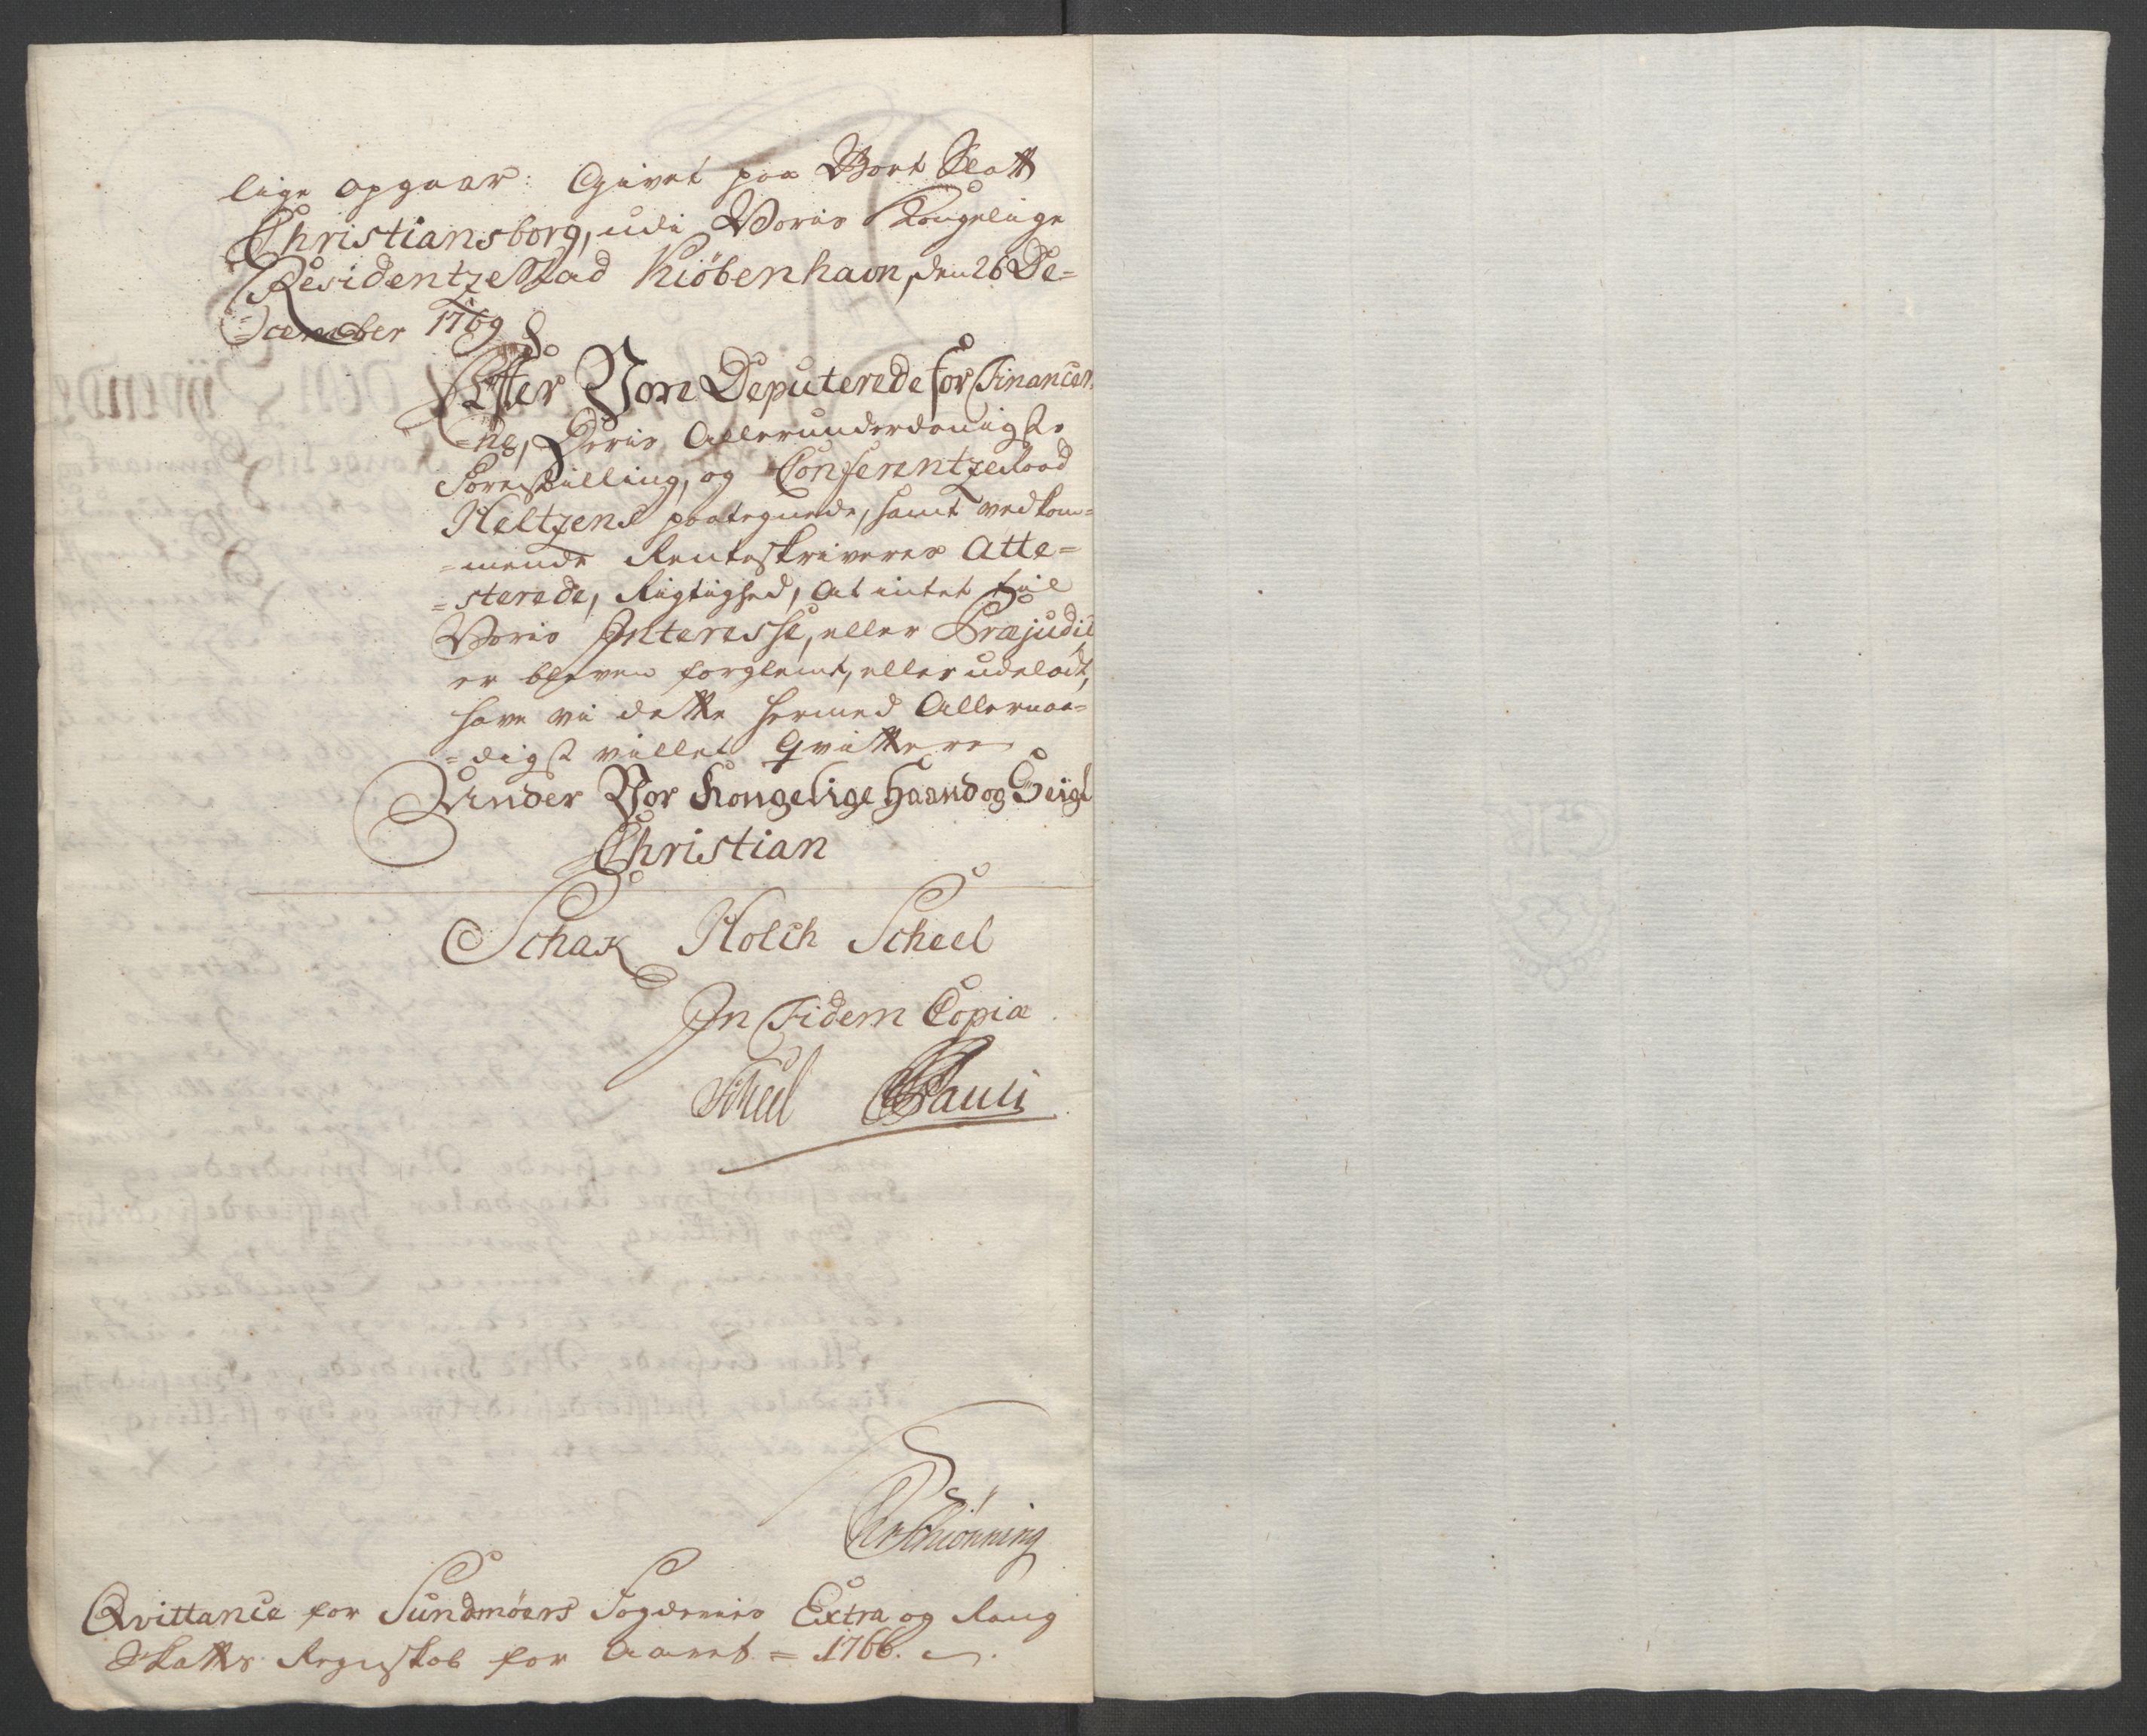 lige opgaar: Givet paa Vort Slott
Christiansborg, udi Voris Kongelige
Residentze Stad Kiöbenhavn, den 26 De=
=cember 1769
Efter Vore Deputerede for Financer
=ne, Deris Allerunderdanigste
Forestilling, og Conferentze Raad
Heltzens paategnede, samt vedkom=
=mende Renteskriveres Atte=
=sterede, Rigtighed, at intet til
Voris Interesse, eller Præjudice
er bleven forglemt, eller udeladt,
have vi dette hermed Allernaa=
=digst villet qvittere
Under Vor Kongelige Haand og Seigl
Christian
Schak Holch Scheel
In Fidem Copiæ
Scheel Pauli
Schiönning
Qvittance for Sundmöers Fogderies Extra og Rang
Skatts Regnskab for Aaret = 1766.